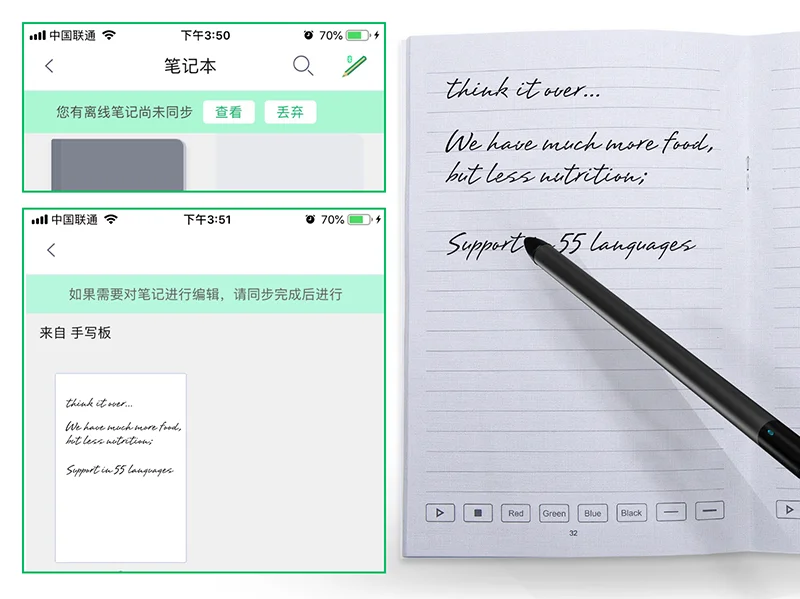 中国联通 下午3:50 70%
笔记本
您有离线笔记尚未同步 查看 丢弃
中国联通 下午3:51 70%
如果需要对笔记进行编辑，请同步完成后进行
来自 手写板
think it over...
We have much more food,
but less nutrition;
Support in 55 languages
think it over...
We have much more food,
but less nutrition;
Support in 55 languages
Red Green Blue Black
32